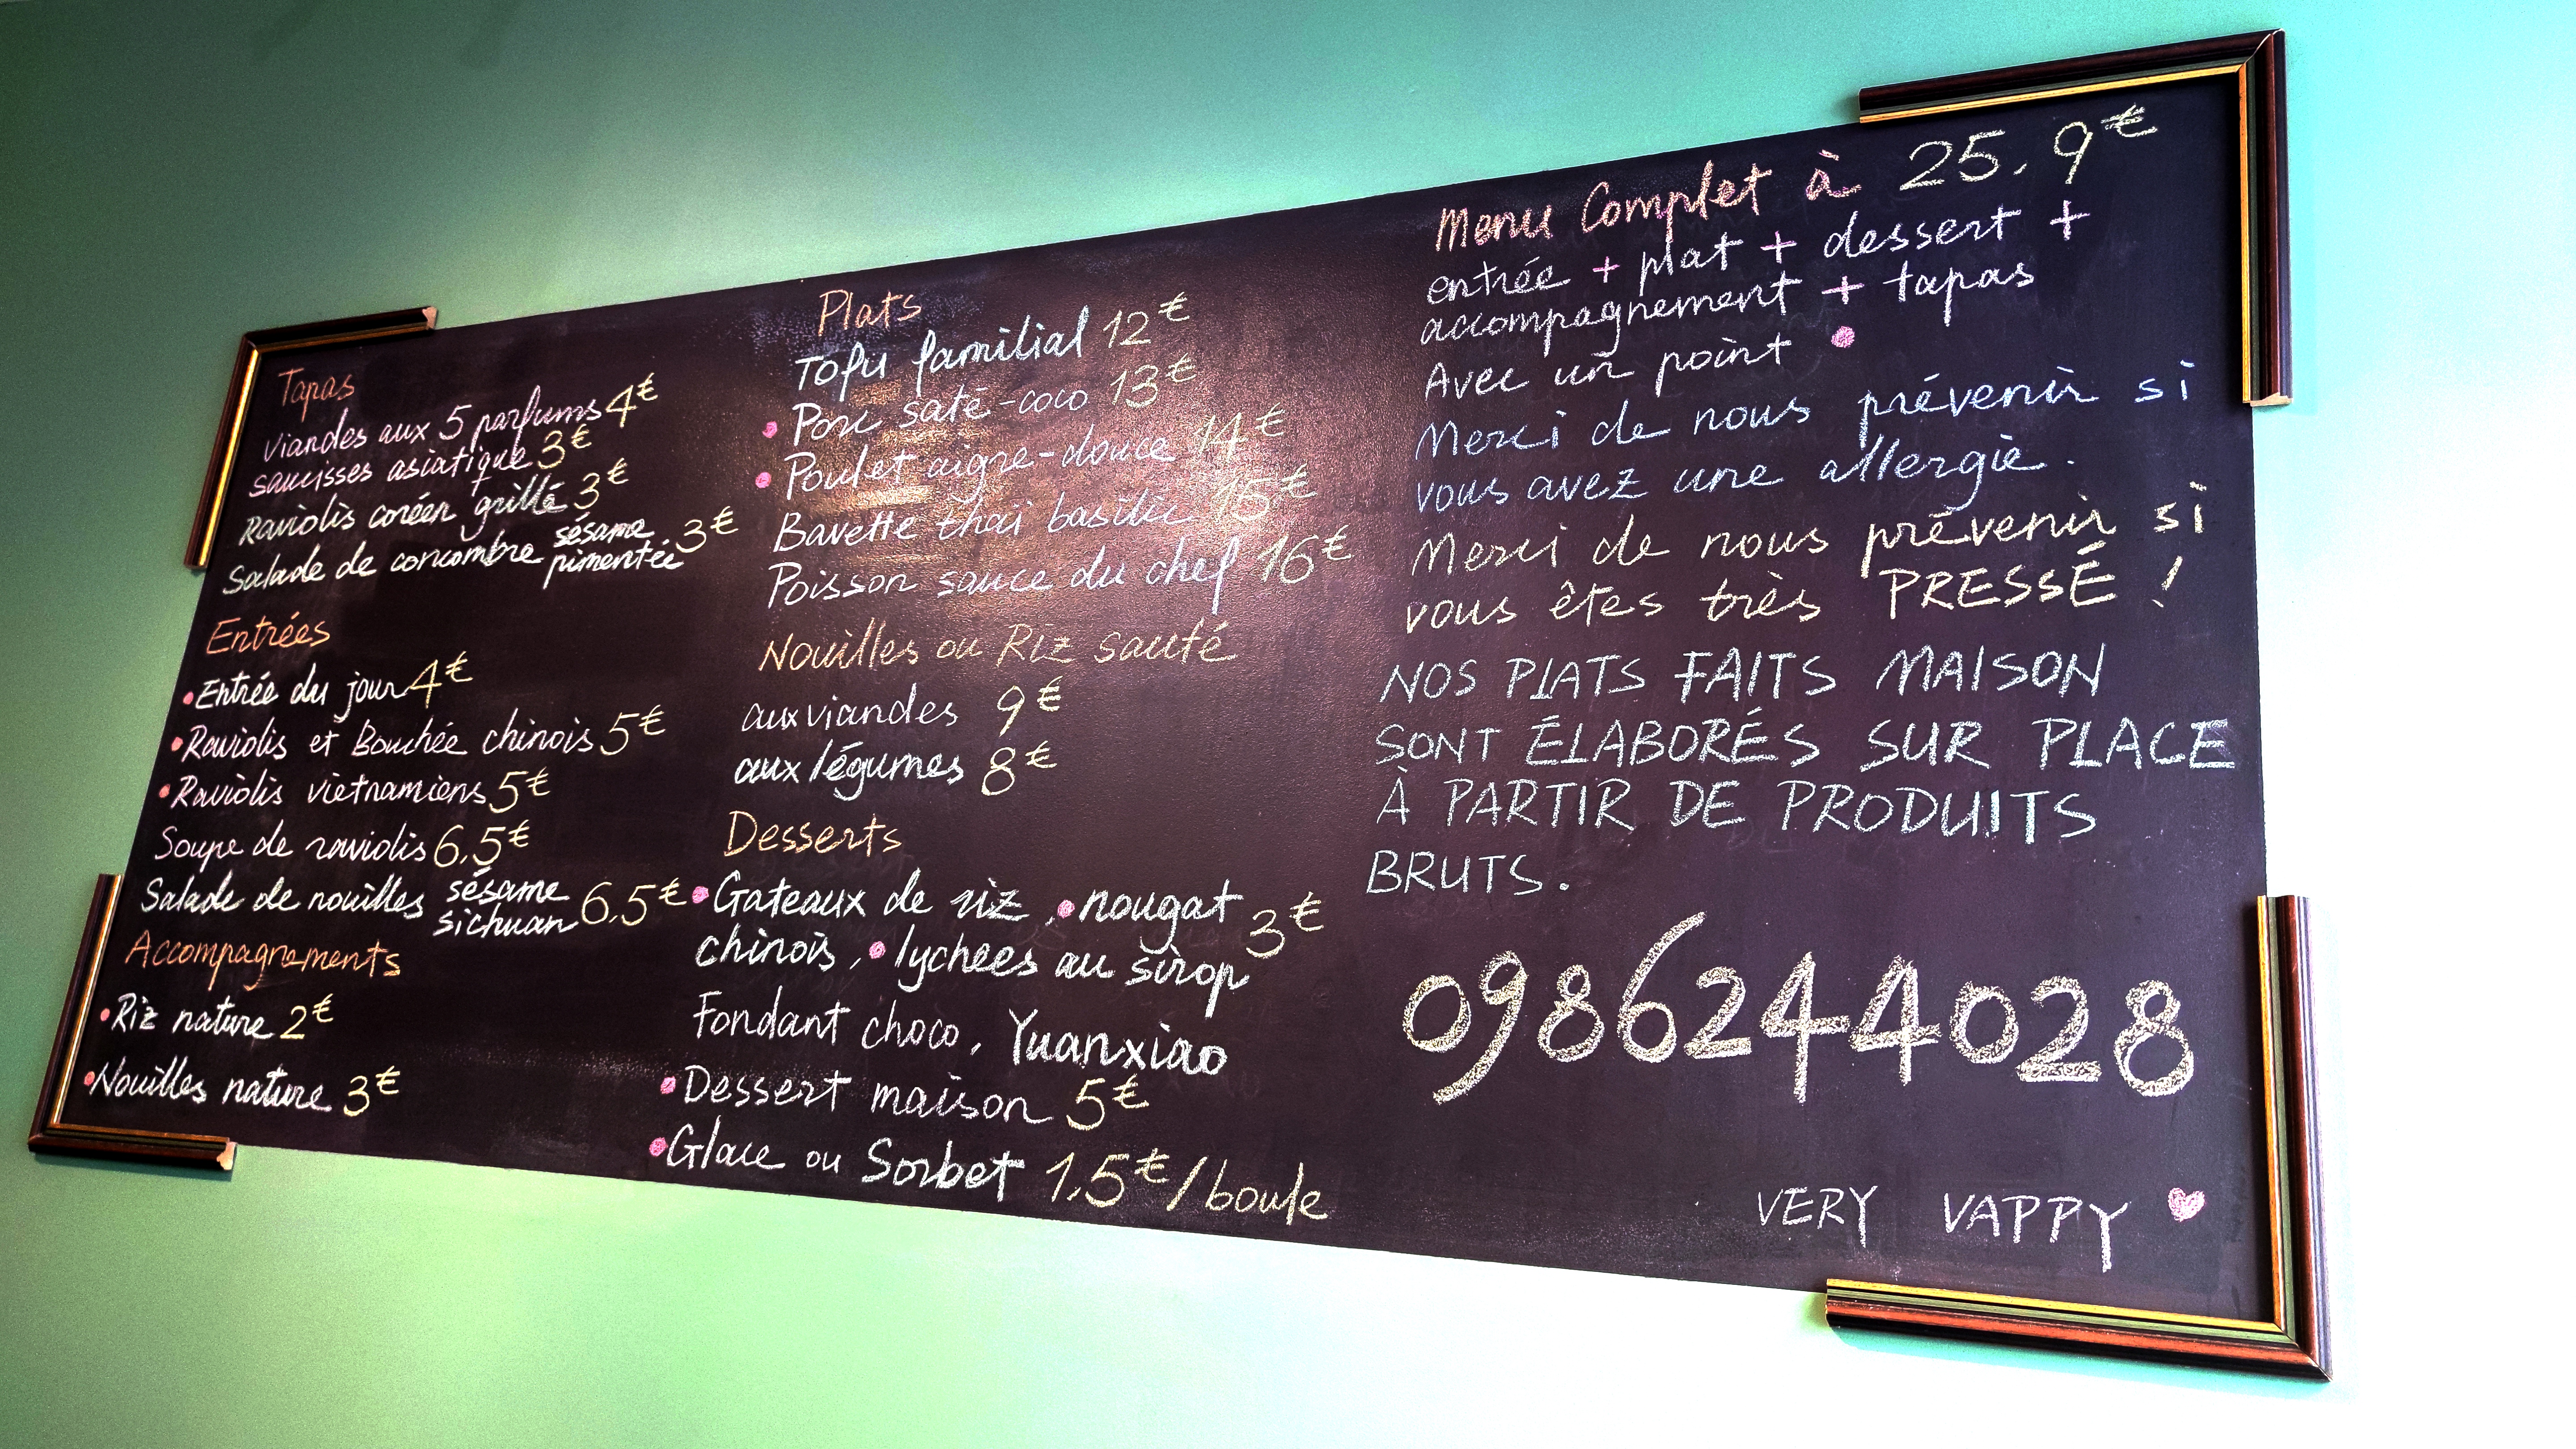 Tapas
Viandes aux 5 parfums 4€
saucisses asiatique 3€
Raviolis coréen grillé 3€
Salade de concombre sésame pimentée 3€
Entrées
• Entrée du jour 4€
• Raviolis et Bouchée chinois 5€
• Raviolis vietnamiens 5€
Soupe de raviolis 6,5€
Salade de nouilles sésame sichuan 6,5€
Accompagnements
• Riz nature 2€
• Nouilles nature 3€
Plats
Tofu familial 12€
• Porc saté-coco 13€
• Poulet aigre-douce 14€
Bavette thaï basilic 15€
Poisson sauce du chef 16€
Nouilles ou Riz sauté
aux viandes 9€
aux légumes 8€
Desserts
• Gateaux de riz, • nougat
chinois, • lychees au sirop 3€
Fondant choco, Yuanxiao
• Dessert maison 5€
• Glace ou Sorbet 1,5€/boule
Menu Complet à 25,9€
entrée + plat + dessert +
accompagnement + tapas
Avec un point •
Merci de nous prévenir si
vous avez une allergie.
Merci de nous prévenir si
vous êtes très PRESSÉ !
NOS PLATS FAITS MAISON
SONT ÉLABORÉS SUR PLACE
À PARTIR DE PRODUITS
BRUTS.
0986244028
VERY VAPPY ♥